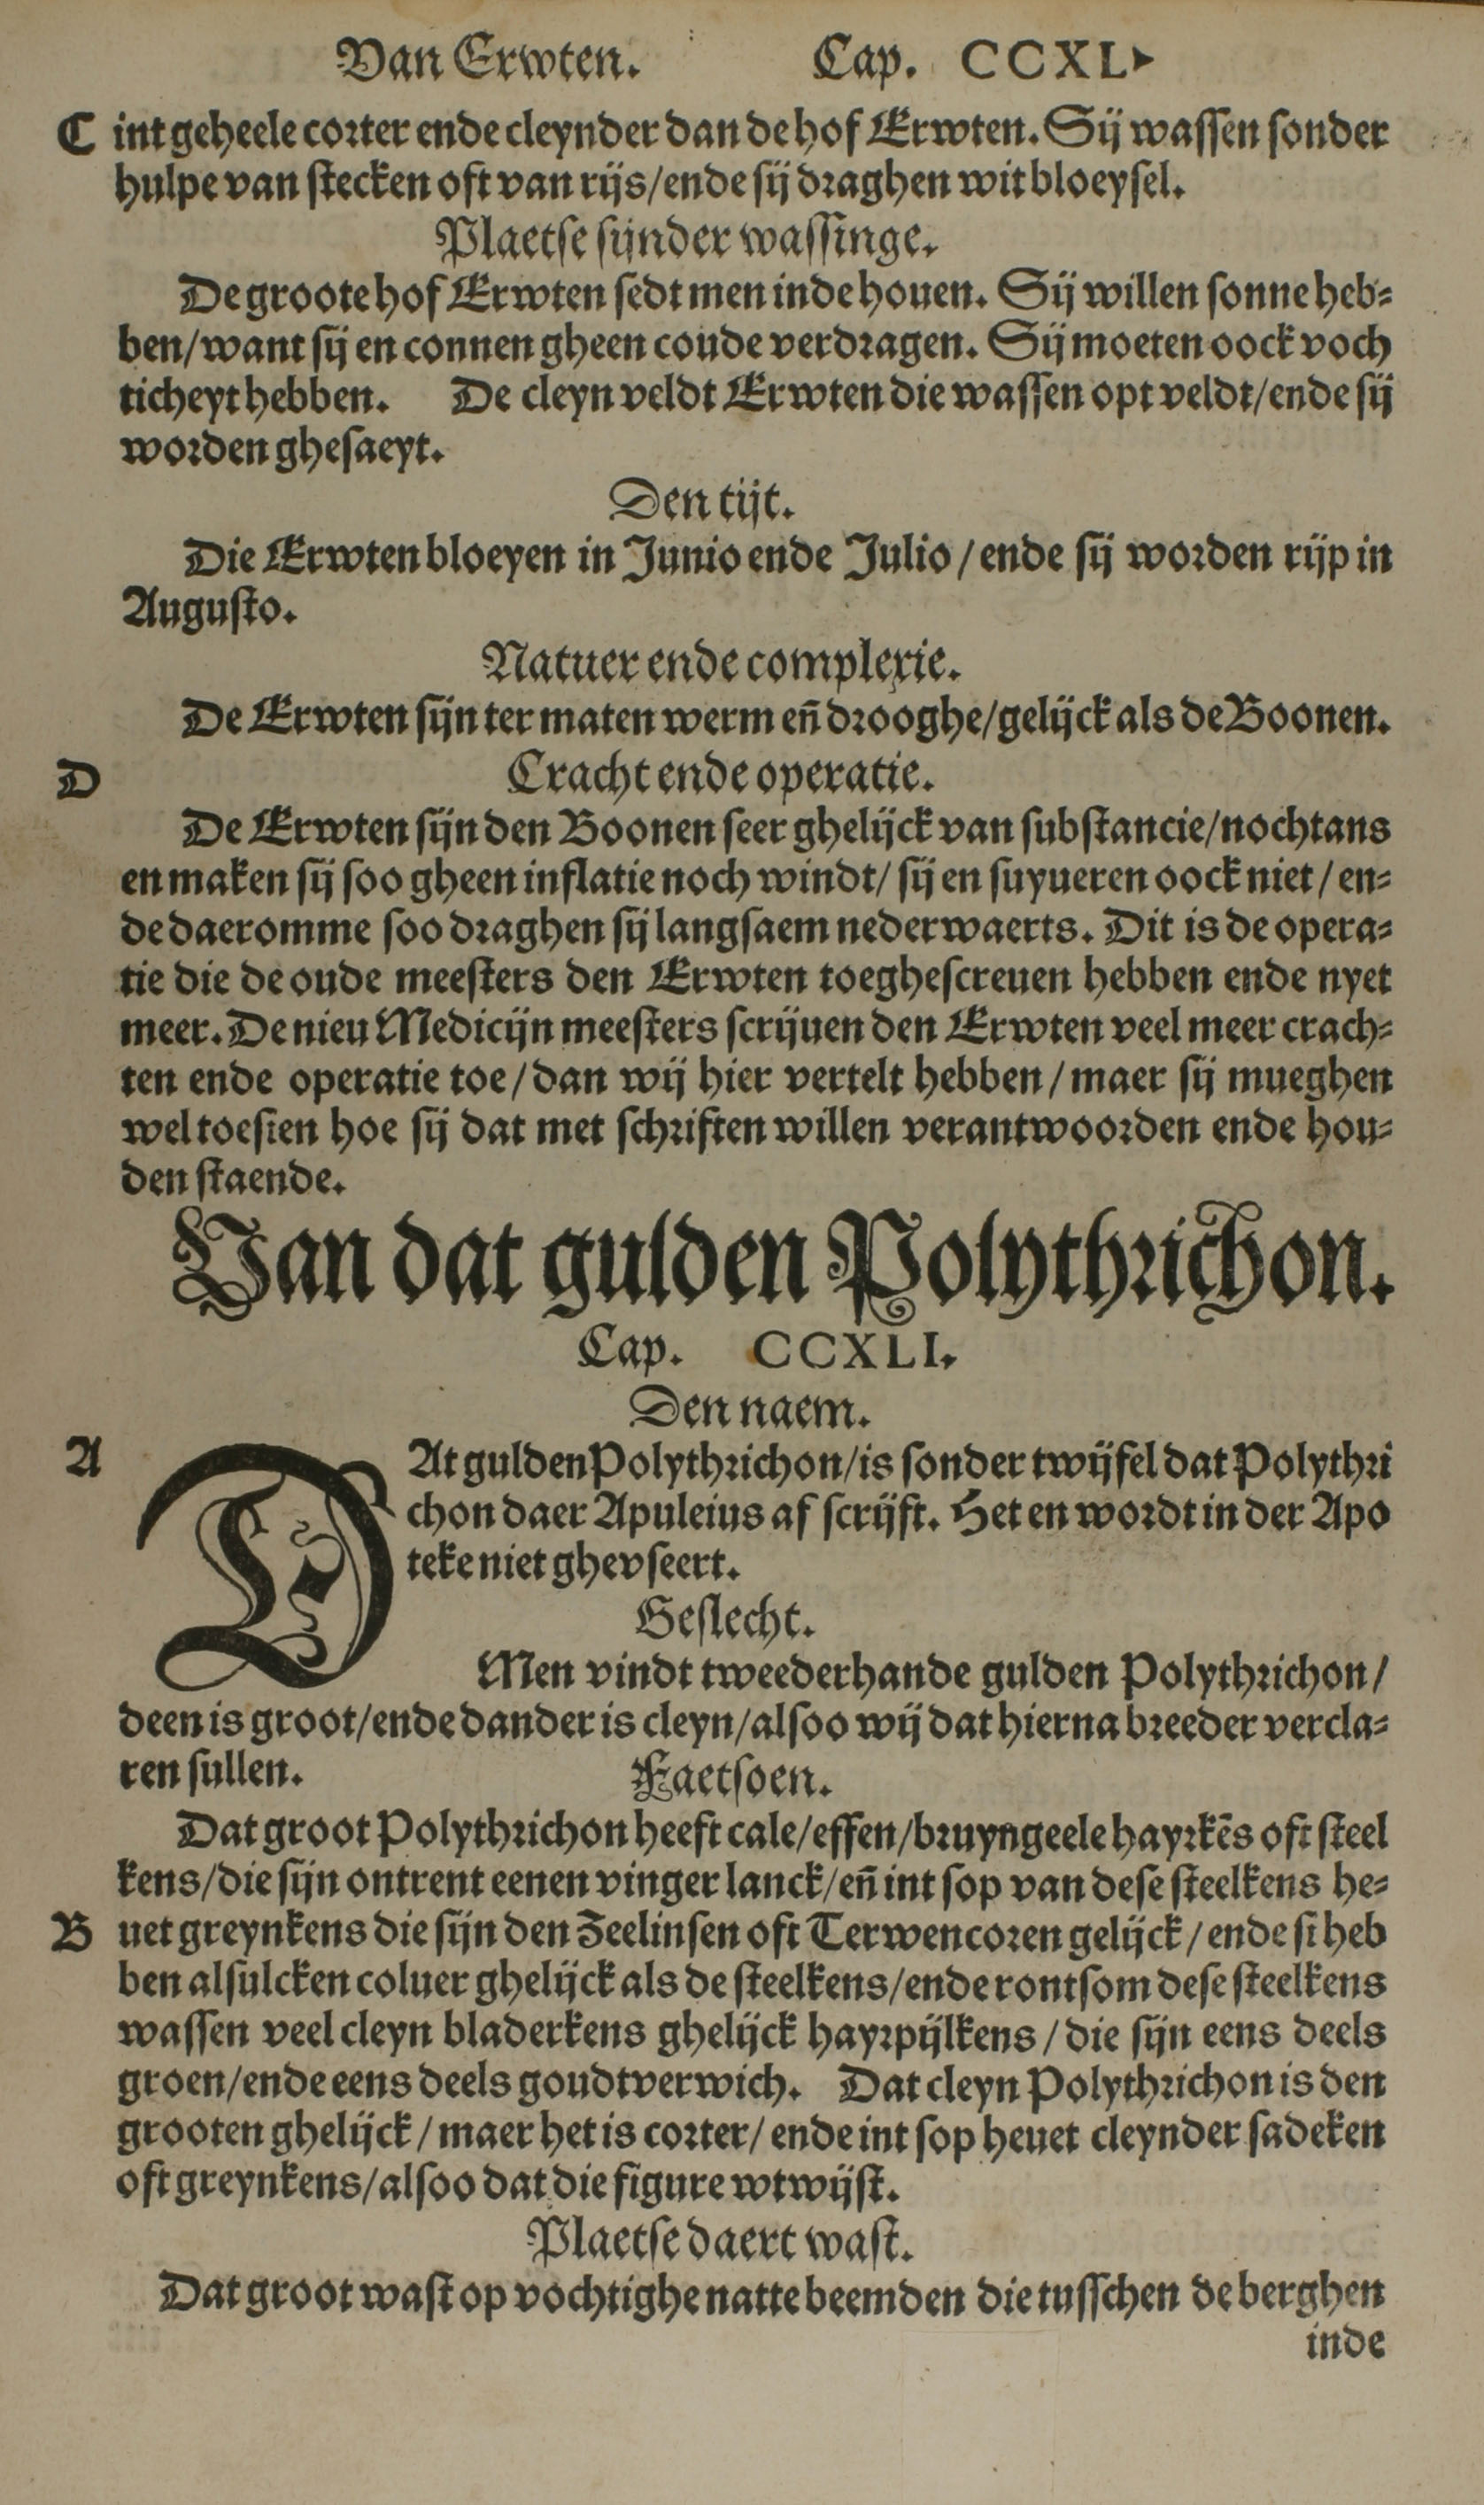 Van Erwten. Cap. CCXL.
C int geheele corter ende cleynder dan de hof Erwten. Sij wassen sonder
hulpe van stecken oft van rijs/ende sij draghen wit bloeysel.
Plaetse sijnder wassinge.
De groote hof Erwten sedt men inde houen. Sij willen sonne heb-
ben/want sij en connen gheen coude verdragen. Sij moeten oock voch
ticheyt hebben. De cleyn veldt Erwten die wassen opt veldt/ende sij
worden ghesaeyt.
Den tijt.
Die Erwten bloeyen in Junio ende Julio/ende sij worden rijp in
Augusto.
Natuer ende complexie.
De Erwten sijn ter maten werm eñ drooghe/gelijck als de Boonen.
D Cracht ende operatie.
De Erwten sijn den Boonen seer ghelijck van substancie/nochtans
en maken sij soo gheen inflatie noch windt/sij en suyueren oock niet/en-
de daeromme soo draghen sij langsaem nederwaerts. Dit is de opera-
tie die de oude meesters den Erwten toeghescreuen hebben ende nyet
meer. De nieu Medicijn meesters scrijuen den Erwten veel meer crach-
ten ende operatie toe/dan wij hier vertelt hebben/maer sij mueghen
wel toesien hoe sij dat met schriften willen verantwoorden ende hou-
den staende.
Van dat gulden Polythrichon.
Cap. CCXLI.
Den naem.
A DAt gulden Polythrichon/is sonder twijfel dat Polythri
chon daer Apuleius af scrijft. Het en wordt in der Apo
teke niet ghevseert.
Geslecht.
Men vindt tweederhande gulden Polythrichon/
deen is groot/ende dander is cleyn/alsoo wij dat hierna breeder vercla-
ren sullen. Faetsoen.
Dat groot Polythrichon heeft cale/effen/bruyngeele hayrkēs oft steel
kens/die sijn ontrent eenen vinger lanck/eñ int sop van dese steelkens he-
B uet greynkens die sijn den Zeelinsen oft Terwencoren gelijck/ende si heb
ben alsulcken coluer ghelijck als de steelkens/ende rontsom dese steelkens
wassen veel cleyn bladerkens ghelijck hayrpijlkens/die sijn eens deels
groen/ende eens deels goudtverwich. Dat cleyn Polythrichon is den
grooten ghelijck/maer het is corter/ende int sop heuet cleynder sadeken
oft greynkens/alsoo dat die figure wtwijst.
Plaetse daert wast.
Dat groot wast op vochtighe natte beemden die tusschen de berghen
inde